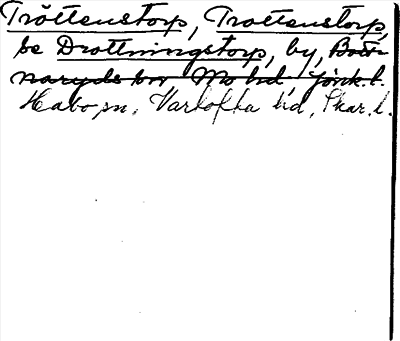 Tröttenstorp, Trottenstorp,
se Drottningstorp, by, Bott-
naryds sn Mo hd, Jönk. l.
Habo sn, Vartofta hd, Skar. l.